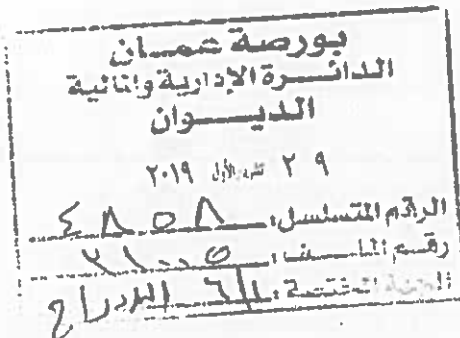 بورصة عمان
الدائرة الإدارية والمالية
الديوان
٢٩ تشرين الأول ٢٠١٩
الرقم المتسلسل: ٤٨٥٨
رقم الملف:
الجهة المختصة: الإدراج